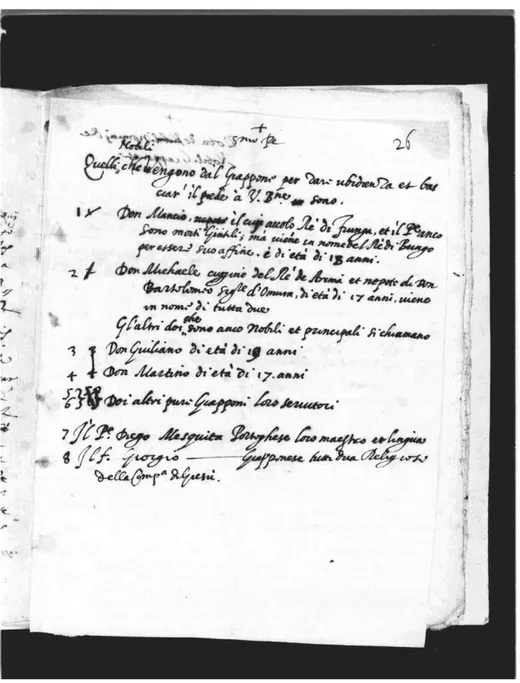 +
26
Nobili
Quelli, che vengono dal Giappone per dare ubidienza et bas
ciar' il piede à V. S.ne sono.
1 Don Mancio, il cui avolo Rè di Fiunga, et il P.e anco
sono morti Gentili; ma viene in nome del Rè di Bungo
per essere suo affine. è di età di 18 anni.
2 Don Michaele cuggino del Rè de Arima et nepote di Don
Bartolomeo Sig.re d'Omura, di età di 17 anni, viene
in nome di tutta due
Gl'altri doi che sono anco Nobili et principali si chiamano
3 Don Giuliano di età di 19 anni
4 Don Martino di età di 17. anni
5 6 Doi altri puri Giapponi loro servitori
7 Il P.e Diego Mesquita Portoghese loro maestro et lingua
8 Il f. Giorgio Giapponese tutti dua Religiosi
della Comp.a di Giesù.